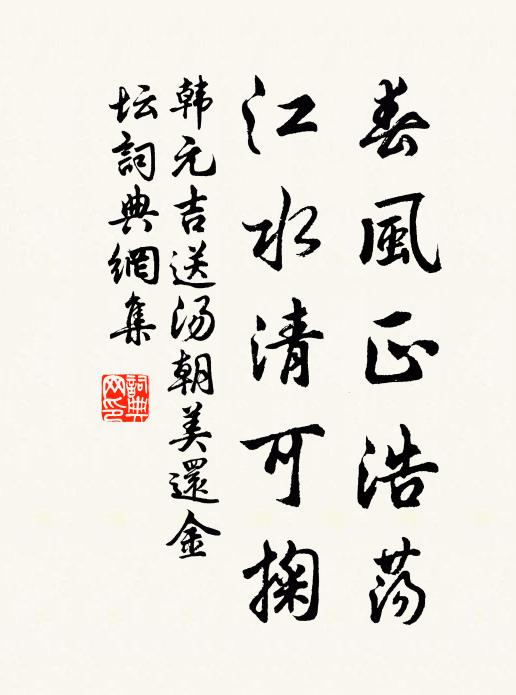 春風正浩荡
江水清可掬
韩元吉送汤朝美還金
坛詞典網集
詞典网印